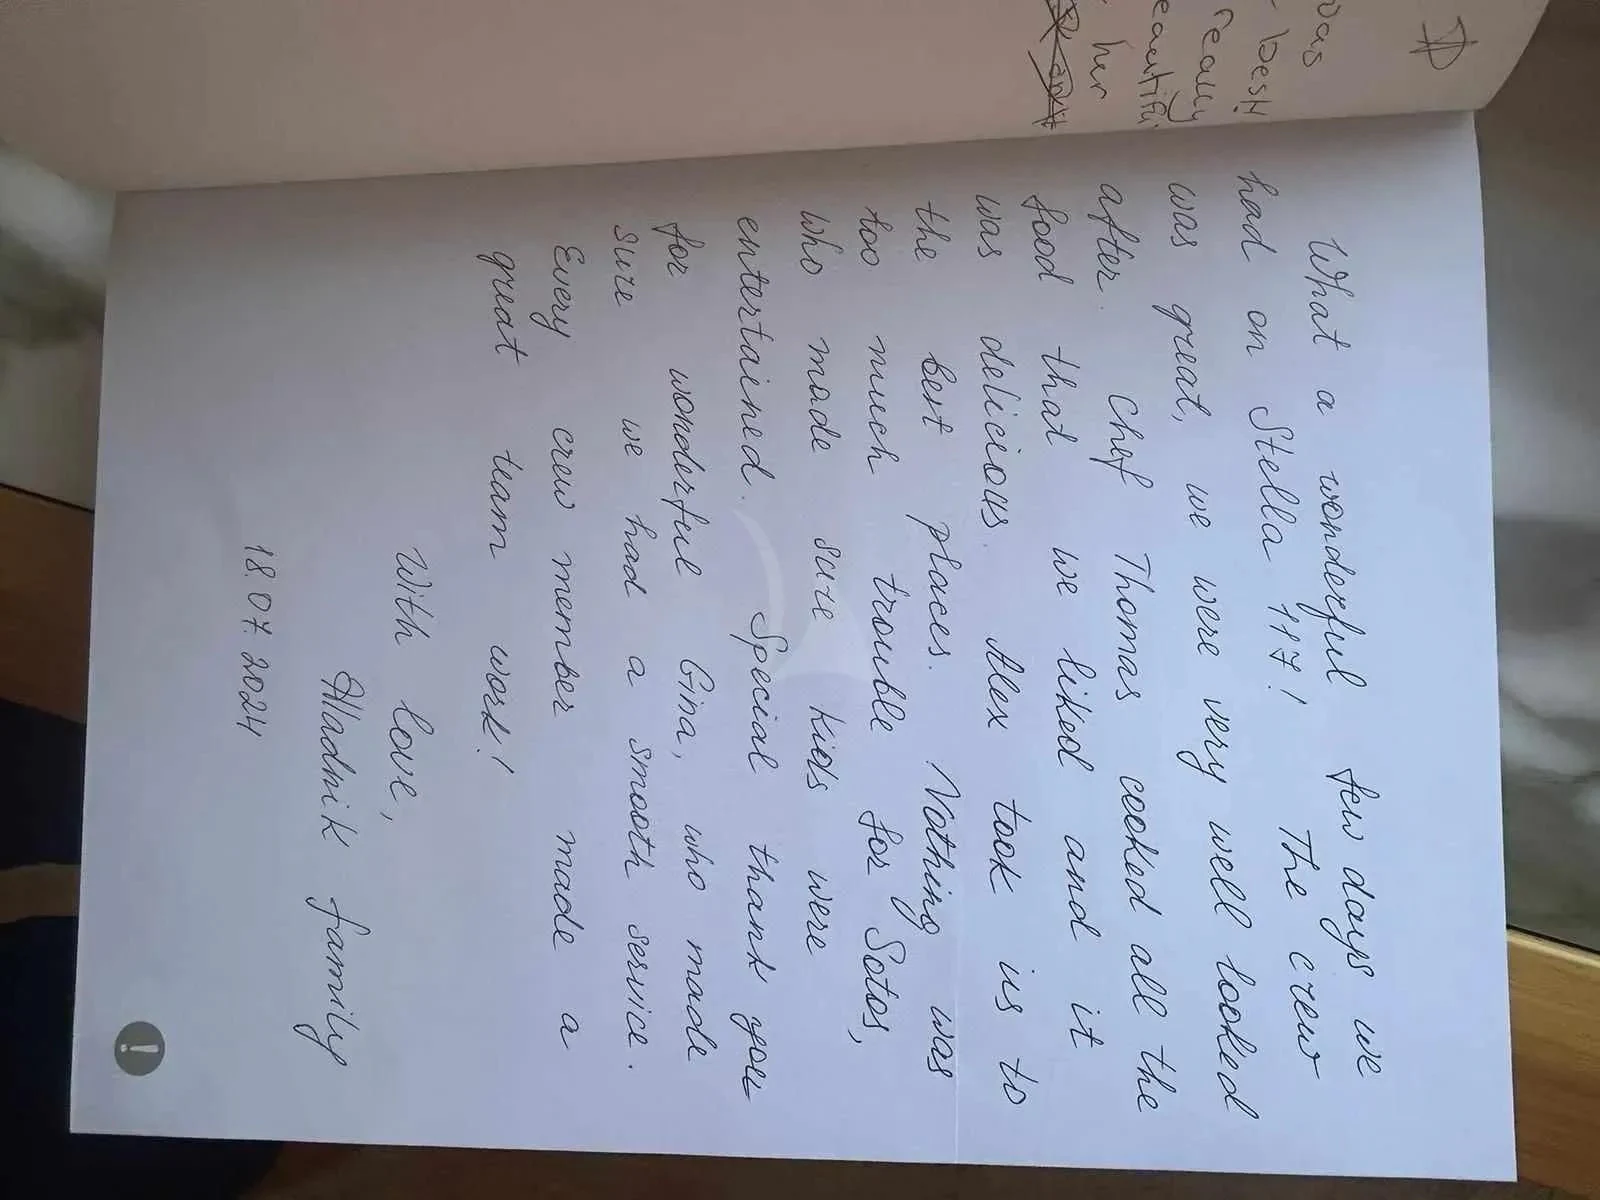 was
best
really
beautiful
her
What a wonderful few days we
had on Stella 117! The crew
was great, we were very well looked
after. Chef Thomas cooked all the
food that we liked and it
was delicious. Alex took us to
the best places. Nothing was
too much trouble for Sotos,
who made sure kids were
entertained. Special thank you
for wonderful Gina, who made
sure we had a smooth service.
Every crew member made a
great team work!
With love,
Hladnik family
18.07.2024